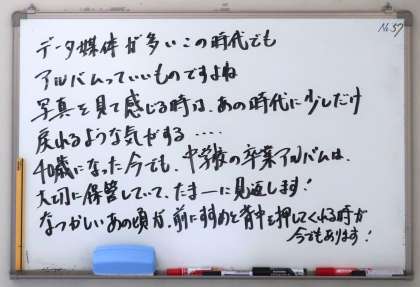 No.57
データ媒体が多いこの時代でも
アルバムっていいものですよね
写真を見て感じる時は、あの時代に少しだけ
戻れるような気がする‥‥
40歳になった今でも、中学校の卒業アルバムは、
大切に保管していて、たまーに見返します!
なつかしいあの頃が、前にすすめと背中を押してくれる時が
今でもあります!